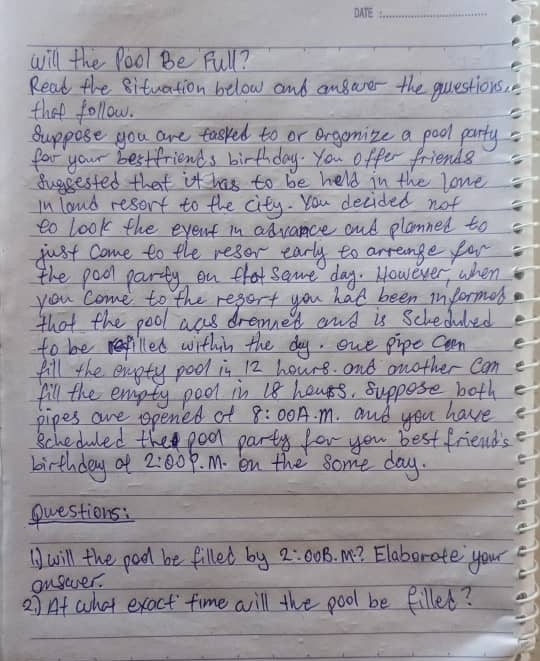 DATE :
Will the Pool Be Full?
Read the Situation below and answer the questions
that follow.
Suppose you are tasked to or organize a pool party
for your bestfriend's birthday. You offer friends
Suggested that it has to be held in the lone
in land resort to the city. You decided not
to look the event in advance and planned to
just come to the resor early to arrange for
the pool party on that same day. However, when
you come to the resort you had been informed
that the pool was drenned and is Scheduled
to be refilled within the day. one pipe Can
fill the empty pool in 12 hours. and another Can
fill the empty pool in 18 hours. Suppose both
pipes are opened at 8:00A.M. and you have
scheduled the pool party for your best friend's
birthday at 2:00P.M. on the Same day.
Questions:
1) will the pool be filled by 2:00P.M.? Elaborate your
answer.
2) At what exact time will the pool be filled?